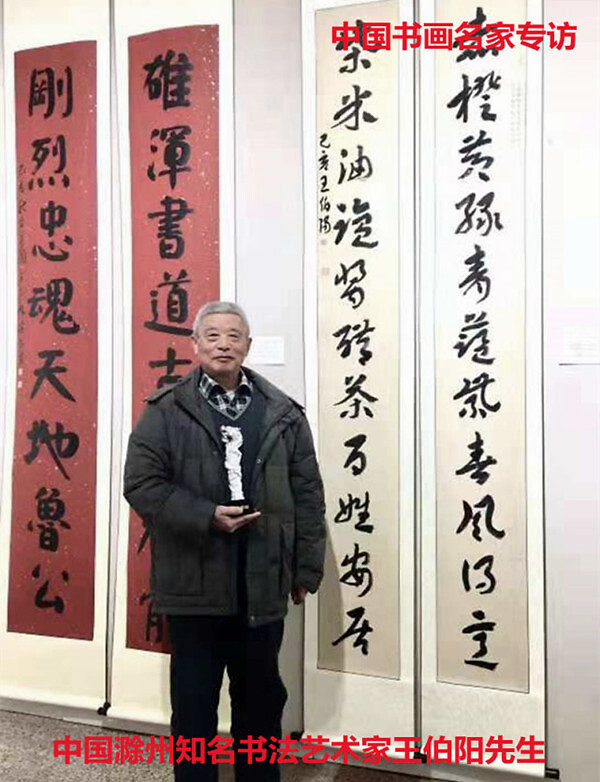 中国书画名家专访
赤橙黄绿青蓝紫春风得意
柴米油盐酱醋茶百姓安居
己亥王伯阳
雄渾書道古
剛烈忠魂天地魯公
中国滁州知名书法艺术家王伯阳先生